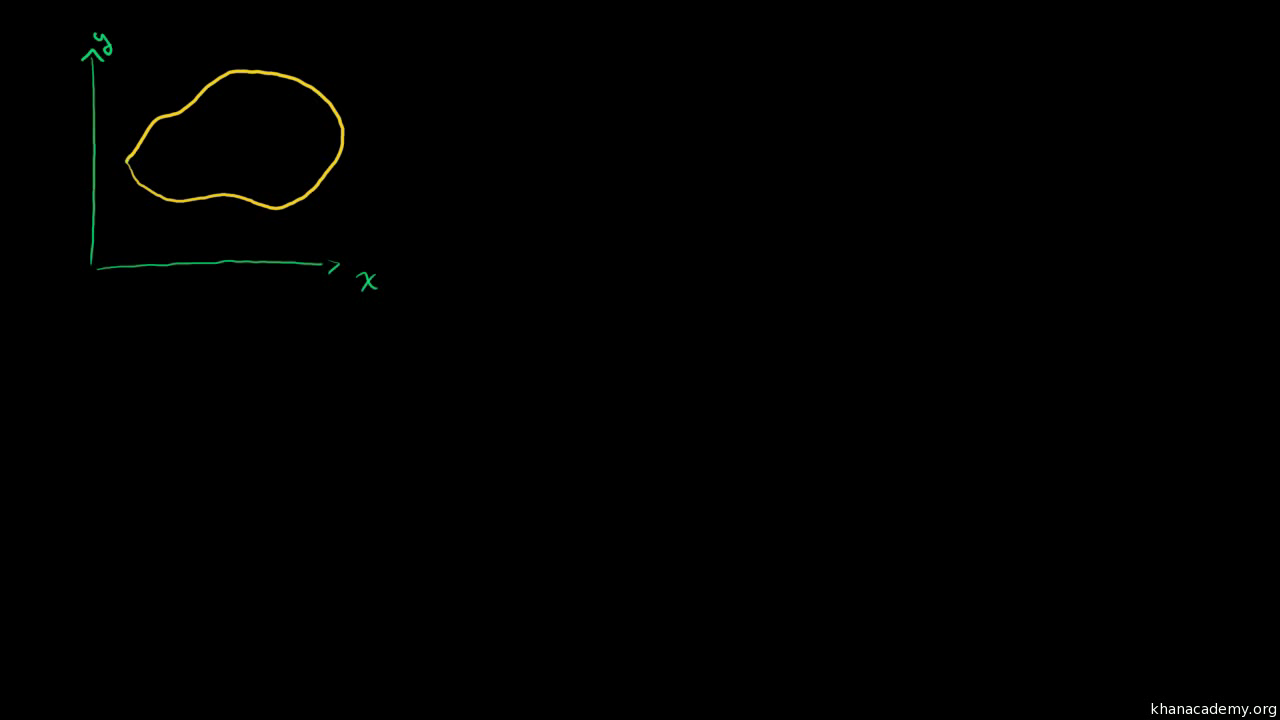 y
x
khanacademy.org